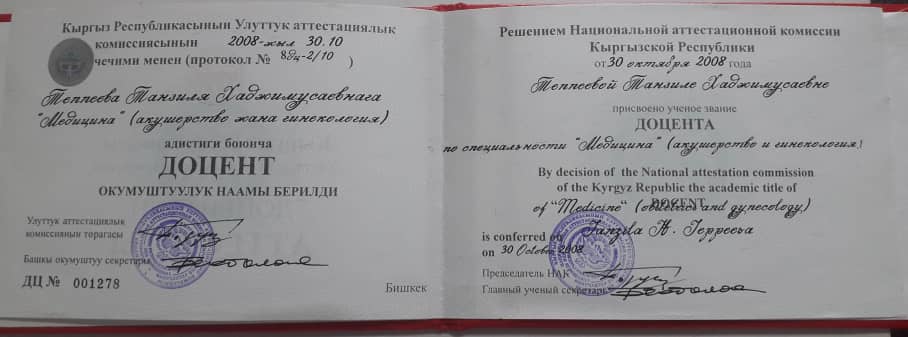 Кыргыз Республикасынын Улуттук аттестациялык
комиссиясынын 2008-жыл 30.10
чечими менен (протокол № 8дц-2/10 )
Теппеева Танзиля Хаджимусаевнага
"Медицина" (акушерство жана гинекология)
адистиги боюнча
ДОЦЕНТ
ОКУМУШТУУЛУК НААМЫ БЕРИЛДИ
Улуттук аттестациялык
комиссиянын торагасы
Башкы окумуштуу секретары
ДЦ № 001278
Бишкек
Решением Национальной аттестационной комиссии
Кыргызской Республики
от 30 октября 2008 года
Теппеевой Танзиле Хаджимусаевне
присвоено ученое звание
ДОЦЕНТА
по специальности "Медицина" (акушерство и гинекология)
By decision of the National attestation commission
of the Kyrgyz Republic the academic title of
DOCENT
of "Medicine" (obstetrics and gynecology)
is conferred on Tanzila H.
on 30 October 2008
Председатель НАК
Главный ученый секретарь